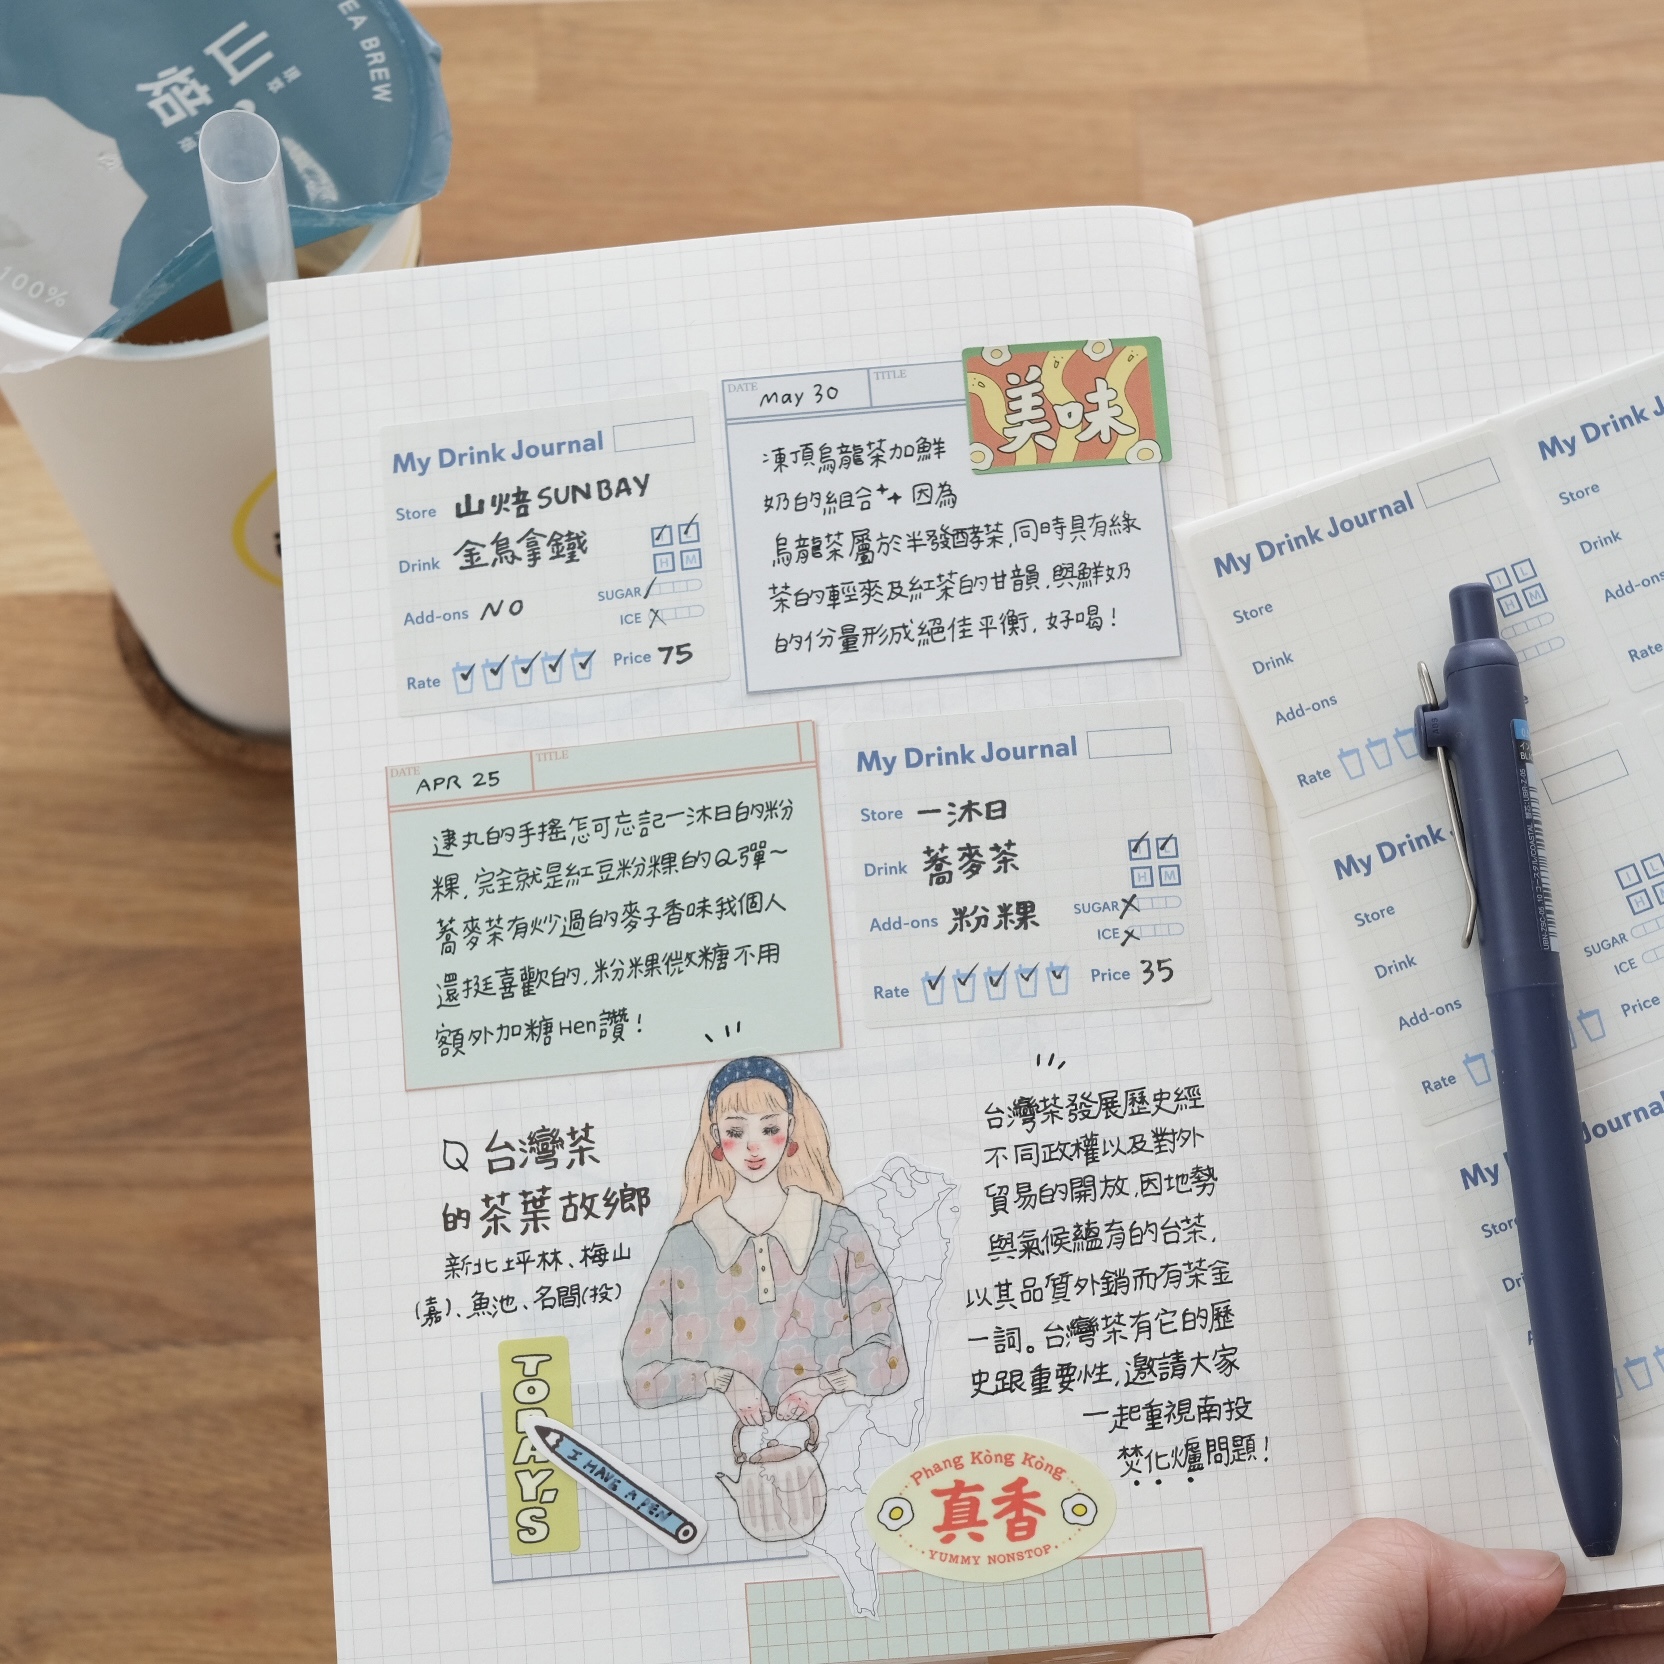 EA BREW
山焙
100%
My Drink Journal
Store 山焙 SUNBAY
Drink 金烏拿鐵
H M
Add-ons NO
SUGAR
ICE
Rate
Price 75
DATE May 30 TITLE
美味
凍頂烏龍茶加鮮
奶的組合 因為
烏龍茶屬於半發酵茶,同時具有綠
茶的輕爽及紅茶的甘韻,與鮮奶
的份量形成絕佳平衡,好喝!
DATE APR 25 TITLE
逮丸的手搖怎可忘記一沐日的粉
粿,完全就是紅豆粉粿的Q彈~
蕎麥茶有炒過的麥子香味我個人
還挺喜歡的,粉粿微糖不用
額外加糖Hen讚!
My Drink Journal
Store 一沐日
Drink 蕎麥茶
L
H M
Add-ons 粉粿
SUGAR
ICE
Rate
Price 35
Q 台灣茶
的茶葉故鄉
新北坪林、梅山
(嘉)、魚池、名間(投)
TODAY'S
I HAVE A PEN
台灣茶發展歷史經
不同政權以及對外
貿易的開放,因地勢
與氣候蘊育的台茶,
以其品質外銷而有茶金
一詞。台灣茶有它的歷
史跟重要性,邀請大家
一起重視南投
焚化爐問題!
Phang Kòng Kòng
真香
YUMMY NONSTOP
My Drink Journal
Store
Drink
Add-ons
Rate
I L
H M
My Drink J
Store
Drink
Add-ons
Rate
My Drink
Store
Drink
Add-ons
Rate
SUGAR
ICE
Price
My
Journal